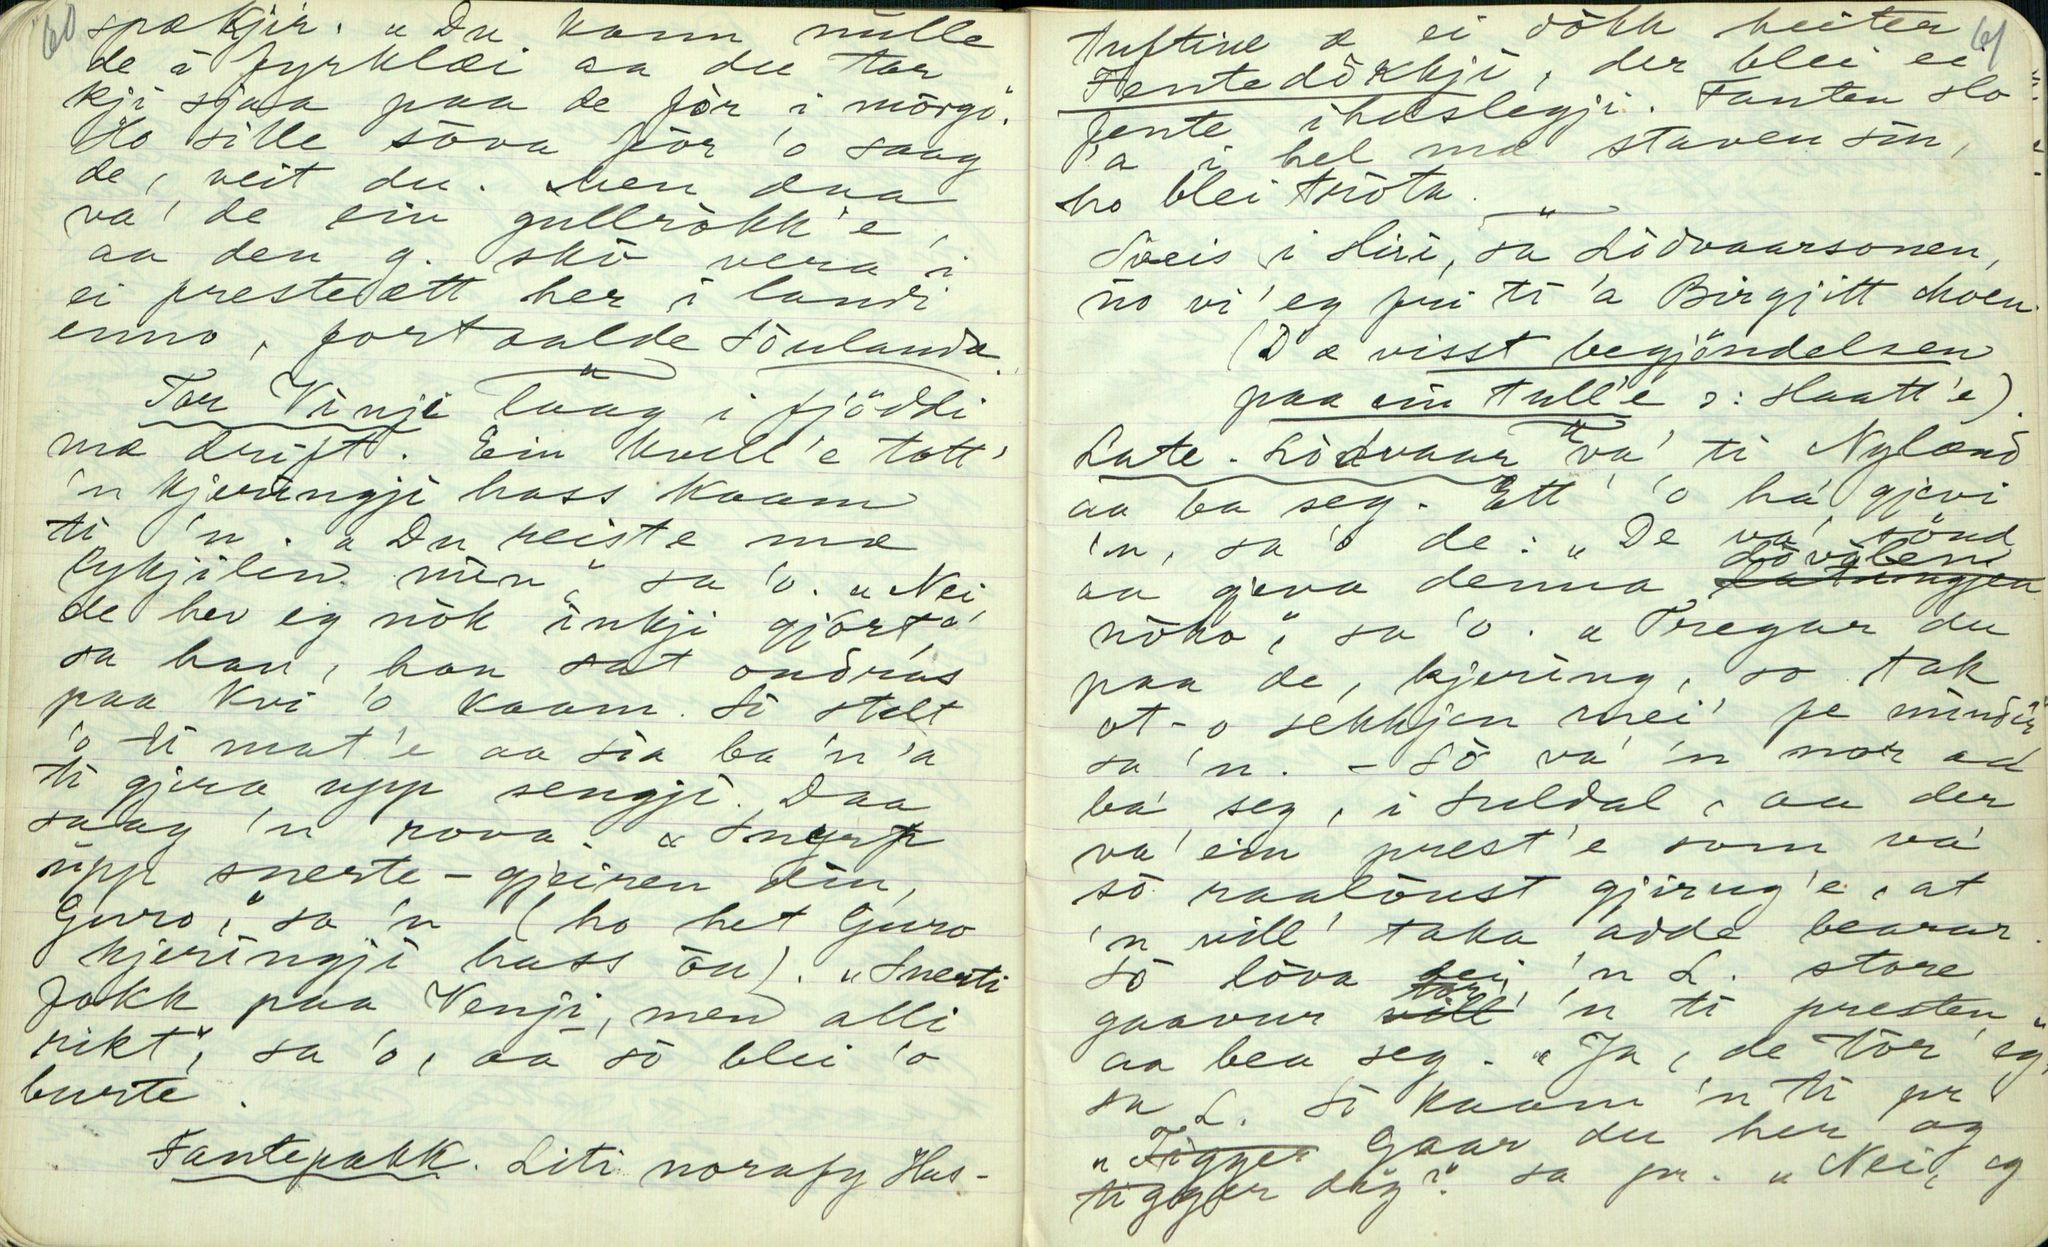 60
spækjir. "Du kann nulle
de i fyrklæi aa du tar
kji sjaa paa de før i mørgo".
Ho sille søva før 'o saag
de, veit du. Men daa
va' de ein gullrøkk'e,
aa den g. sko vera i
ei presteætt her i landi
enno, fortaalde Søulanda.
Tor Vinji laag i fjøddi
mæ drift. Ein kvell'e tøtt'
'n kjeringji hass kaam
ti 'n. "Du reiste mæ
lykjilen min" sa 'o. "Nei
de hev eg nok inkji gjort",
sa han, han sat ondras
paa kvi 'o kaam. So stelt
'o ti mat'e aa sia ba 'n 'a
ti gjera upp sengji. Daa
saag 'n rova. "Snyrp
upp snerte-gjeiren din,
Guro," sa 'n (ho het Guro
kjeringji hass òu). "Snerti
fokk paa Venji, men alli
rikt", sa 'o, aa so blei 'o
burte.
Fantepakk. Liti norafy Hus-
61
tuftine æ ei døkk heiter
Fentedøkkji, der blei ei
fente ihelslegji. Fanten slo
'a i hel mæ staven sin,
ho blei trøta.
Sveis i Hiri, sa Lødvaarsonen,
no vi' eg fri ti 'a Birgjitt Moen.
(D æ visst begjøndelsen
paa ein tull'e ɔ: slaatt'e).
Late-Lødvaar va' ti Nylænd
aa ba seg. Ett' 'o ha' gjevi
'n, sa 'o de: "De va' sønd
aa gjeva denna døvølen
noko", sa 'o. "Tregar du
paa de, kjering, so tak
ot-o sekkjen mei' pe mindir"
sa 'n. - So va' 'n nor ad
ba' seg, i Suldal, aa der
va' ein prest'e som va'
so raaløust gjirug'e, at
'n vill' taka adde bearar.
So løva dei 'n L. store
gaavur tor' 'n ti presten
aa bea seg. "Ja, de tor' eg",
sa L. So kaam 'n ti pr
"Tigger Gaar du her og
tigger dig?" sa pr. "Nei, eg